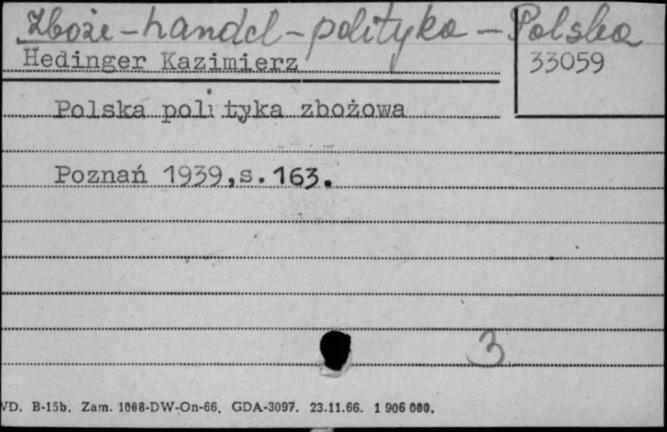 Zboże - handel - polityka - Polska
Hedinger Kazimierz
33059
Polska polityka zbożowa
Poznań 1939,s.163.
3
VD. B-15b. Zam. 1008-DW-On-66. GDA-3097. 23.11.66. 1 906 000.